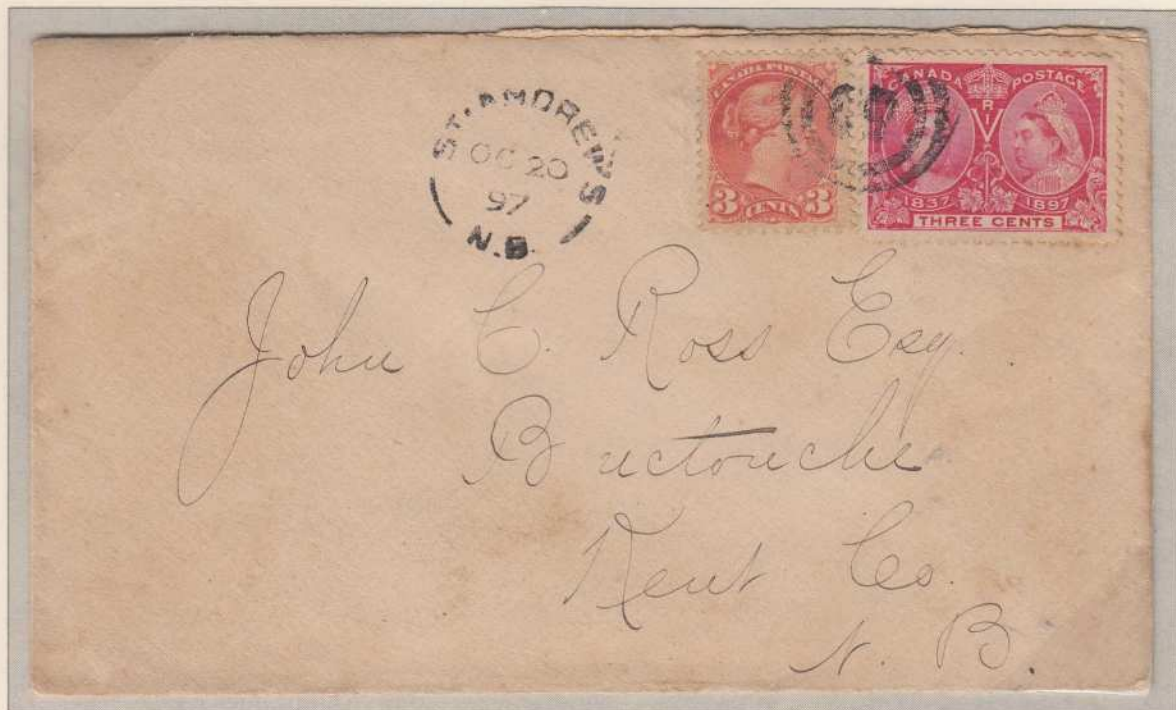 ST. ANDREWS
OC 20
97
N.B.
CANADA POSTAGE
3 CENTS 3
CANADA POSTAGE
V R I
1837 1897
THREE CENTS
John C. Ross Esq.
Buctouche
Kent Co.
N. B.